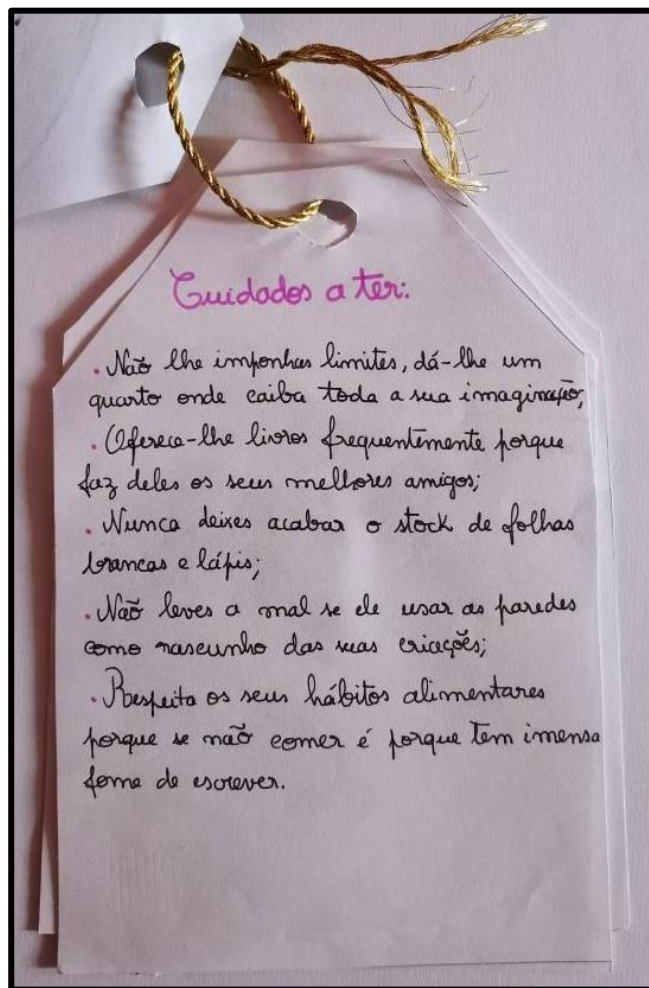 Cuidados a ter:
. Não lhe imponhas limites, dá-lhe um
quarto onde caiba toda a sua imaginação;
. Oferece-lhe livros frequentemente porque
faz deles os seus melhores amigos;
. Nunca deixes acabar o stock de folhas
brancas e lápis;
. Não leves a mal se ele usar as paredes
como rascunho das suas criações;
. Respeita os seus hábitos alimentares
porque se não comer é porque tem imensa
fome de escrever.